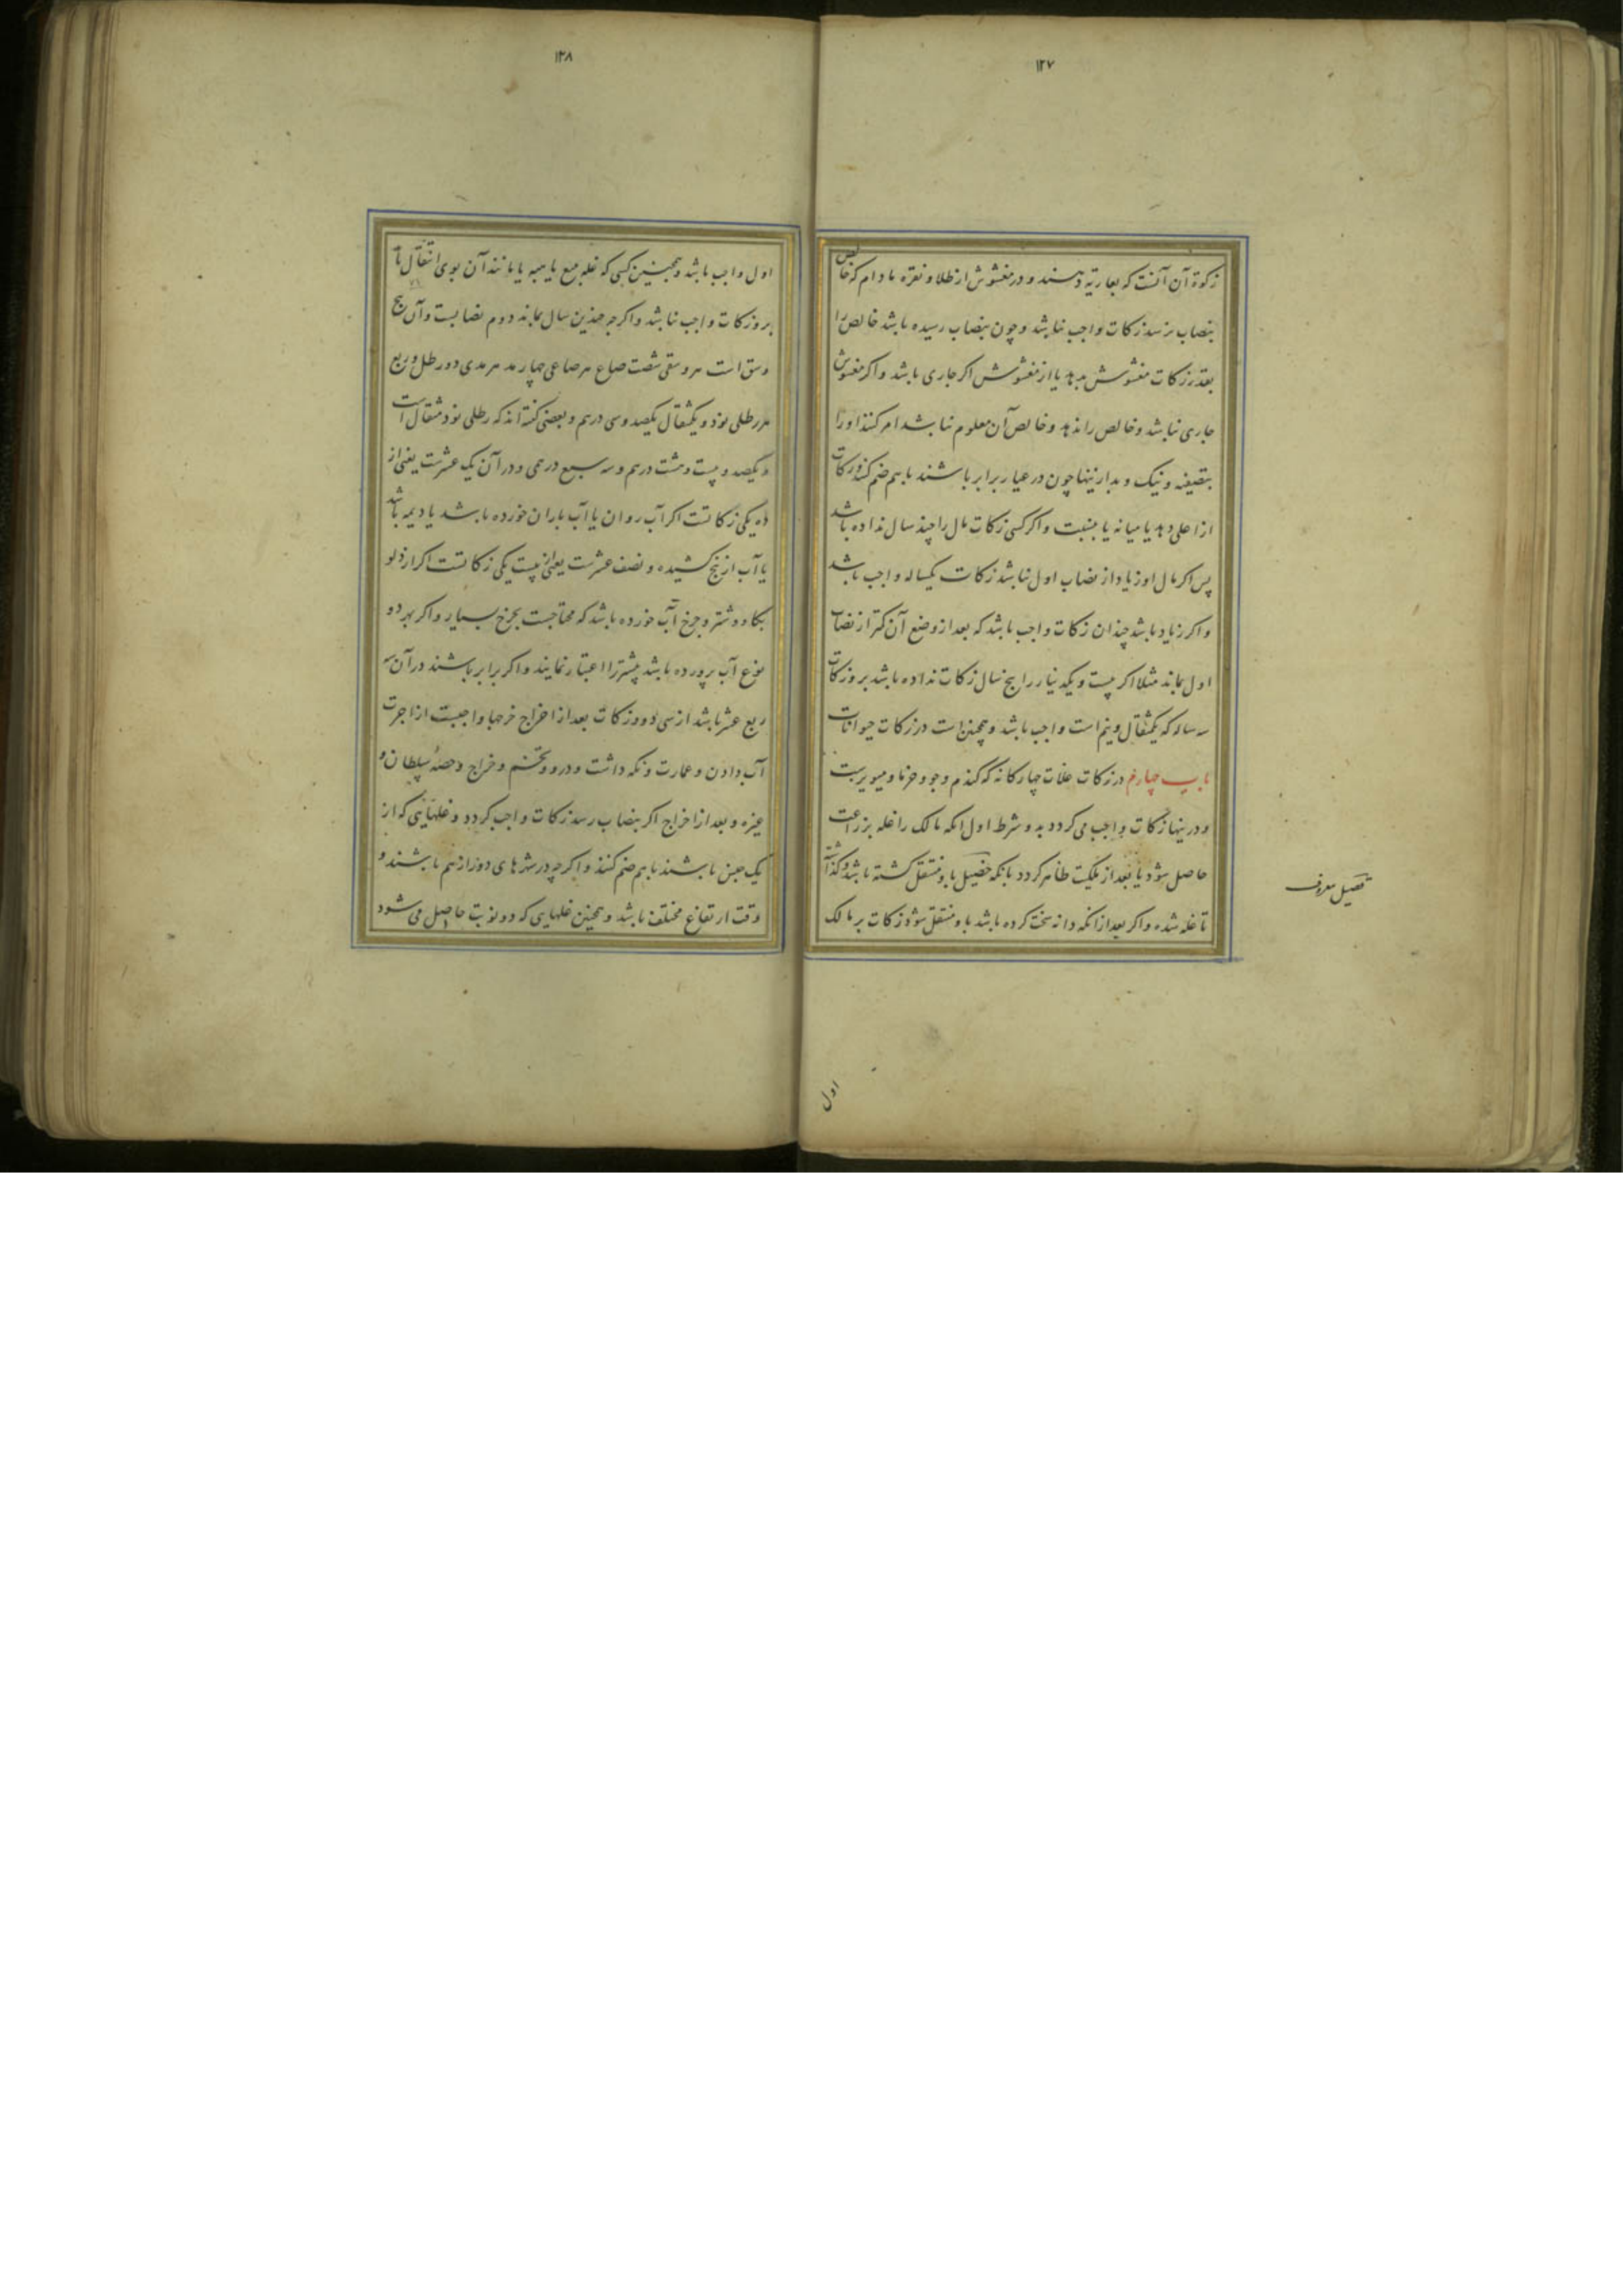 ١٢٧
زکوة آن آنست که بعاریة دهند و در مغشوش از طلا و نقره مادام که خالص
بنصاب نرسد زکات واجب نباشد و چون بنصاب رسیده باشد خالص را
بقدر زکات مغشوش بدهد یا از مغشوش اکر جاری باشد و اکر مغشوش
جاری نباشد و خالص را ندهد و خالص آن معلوم نباشد امر کنند او را
بتصفیه و نیک و بد ازینها چون در عیار برابر باشند باهم ضم کنند و زکات
از اعلی دهد یا میانه یا بنسبت و اکر کسی زکات مال را چند سال نداده باشد
پس اکر مال او زیاد از نصاب اول نباشد زکات یکساله واجب باشد
و اکر زیاد باشد چندان زکات واجب باشد که بعد از وضع آن کمتر از نصاب
اول بماند مثلا اکر بیست و یکدینار را پنج سال زکات نداده باشد برو زکات
سه ساله که یکمثقال و نیم است واجب باشد و همچنین است در زکات حیوانات
باب چهارم در زکات غلات چهارکانه که کندم و جو و خرما و میویزست
و درینها زکات واجب می کردد بدو شرط اول آنکه مالک را غله بزراعت
حاصل شود یا بعد از ملکیت ظاهر کردد بآنکه خصیل باو منتقل کشته باشد و کذاشته
تا غله شده و اکر بعد از انکه دانه سخت کرده باشد باو منتقل شود زکات بر مالک
قصیل معروف
اول
١٢٨
اول واجب باشد و همچنین کسی که غله ببیع یا هبه یا مانند آن بوی انتقال یافت
برو زکات واجب نباشد و اکرچه چندین سال بماند دوم نصابست و آن پنج
وسق است هر وسقی شصت صاع هر صاعی چهار مد هر مدی دو رطل و ربع
هر رطلی نود و یکمثقال یکصد و سی درهم و بعضی کفته اند که رطلی نود مثقال است
و یکصد و بیست و هشت درهم و سه سبع درهمی و در آن یک عشرست یعنی از
ده یکی زکاتست اکر آب روان یا آب باران خورده باشد یا دیمه باشد
یا آب از بیخ کشیده و نصف عشرست یعنی از بیست یکی زکاتست اکر از دلو
بکاو و شتر و چرخ آب خورده باشد که محتاجست بخرج بسیار و اکر بهر دو
نوع آب پرورده باشد بیشتر را اعتبار نمایند و اکر برابر باشند در آن سه
ربع عشر باشد از سی دو و زکات بعد از اخراج خرجها واجبست از اجرت
آب دادن و عمارت و نکه داشت و درو و تخم و خراج و حصهٔ سلطان و
غیره و بعد از اخراج اکر بنصاب رسد زکات واجب کردد و غلهایی که از
یک جنس باشند باهم ضم کنند و اکرچه در شهرهای دور از هم باشند و
وقت ارتفاع مختلف باشد و همچنین غلهایی که دو نوبت حاصل می شود